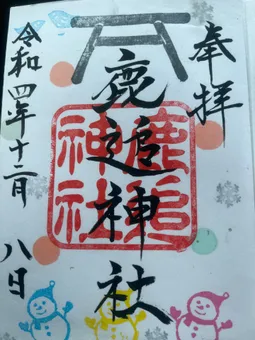 奉拝
鹿追神社
鹿追神社
令和四年十二月八日